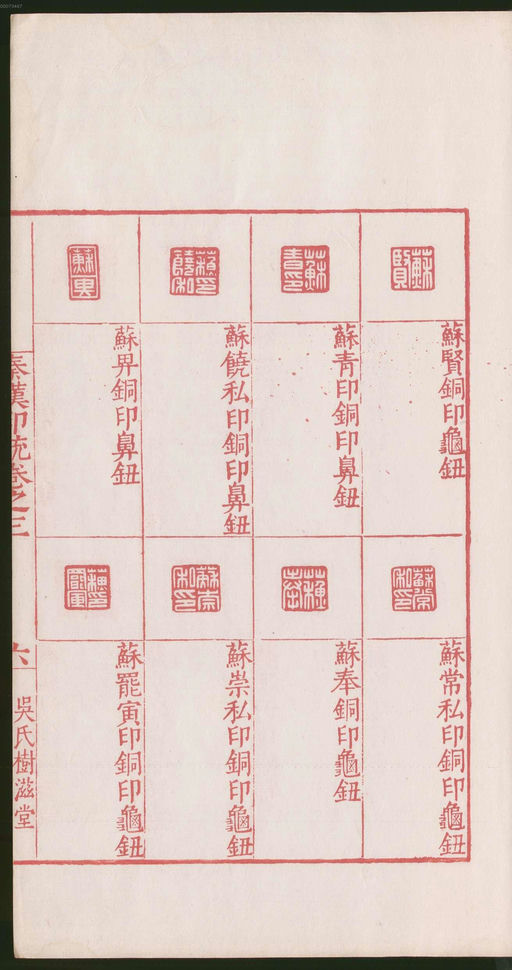 蘇賢銅印龜鈕
蘇青印銅印鼻鈕
蘇饒私印銅印鼻鈕
蘇畀銅印鼻鈕
蘇常私印銅印龜鈕
蘇奉銅印龜鈕
蘇崇私印銅印龜鈕
蘇罷寅印銅印龜鈕
秦漢印統卷之三
六
吳氏樹滋堂
00073447